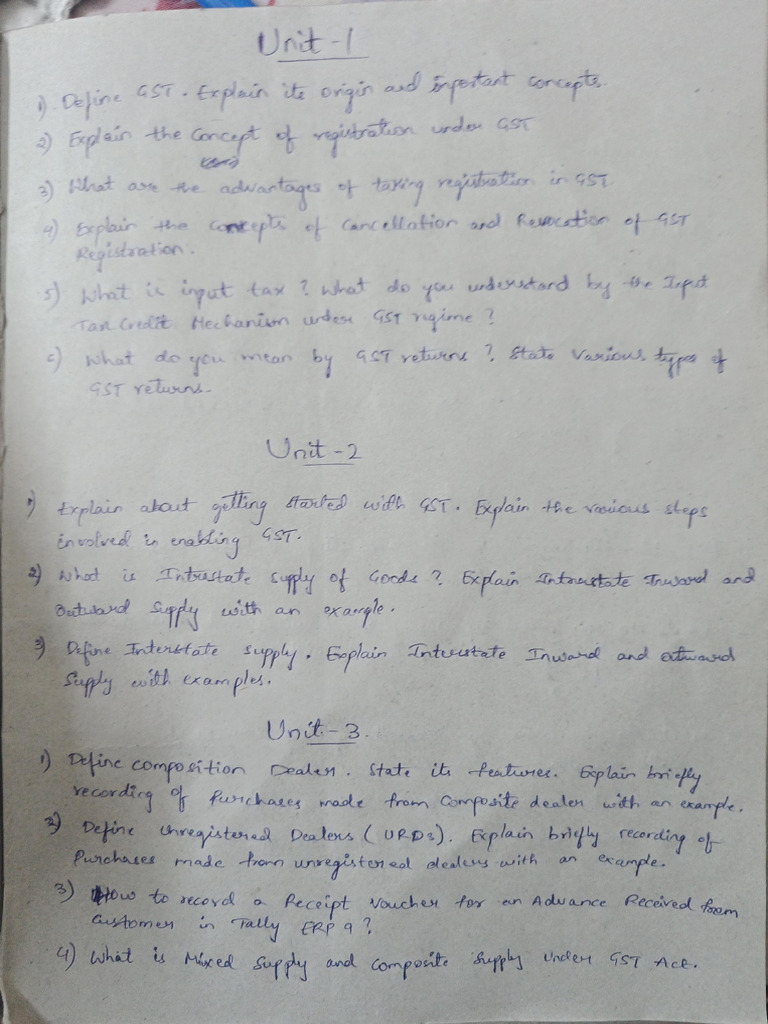 Unit-1
1) Define GST. Explain its origin and important concepts.
2) Explain the Concept of registration under GST
3) What are the advantages of taking registration in GST
4) Explain the concepts of Cancellation and Revocation of GST
Registration.
5) What is input tax? What do you understand by the Input
Tax Credit Mechanism under GST regime?
6) What do you mean by GST returns? State Various types of
GST returns.
Unit-2
1) Explain about getting started with GST. Explain the various steps
involved in enabling GST.
2) What is Intrastate supply of Goods? Explain Intrastate Inward and
Outward Supply with an example.
3) Define Interstate supply. Explain Interstate Inward and outward
Supply with examples.
Unit-3.
1) Define composition Dealer. State its features. Explain briefly
recording of Purchases made from Composite dealer with an example.
2) Define Unregistered Dealers (URDs). Explain briefly recording of
Purchases made from unregistered dealers with an example.
3) How to record a Receipt Voucher for an Advance Received from
Customer in Tally ERP 9?
4) What is Mixed Supply and Composite Supply Under GST Act.